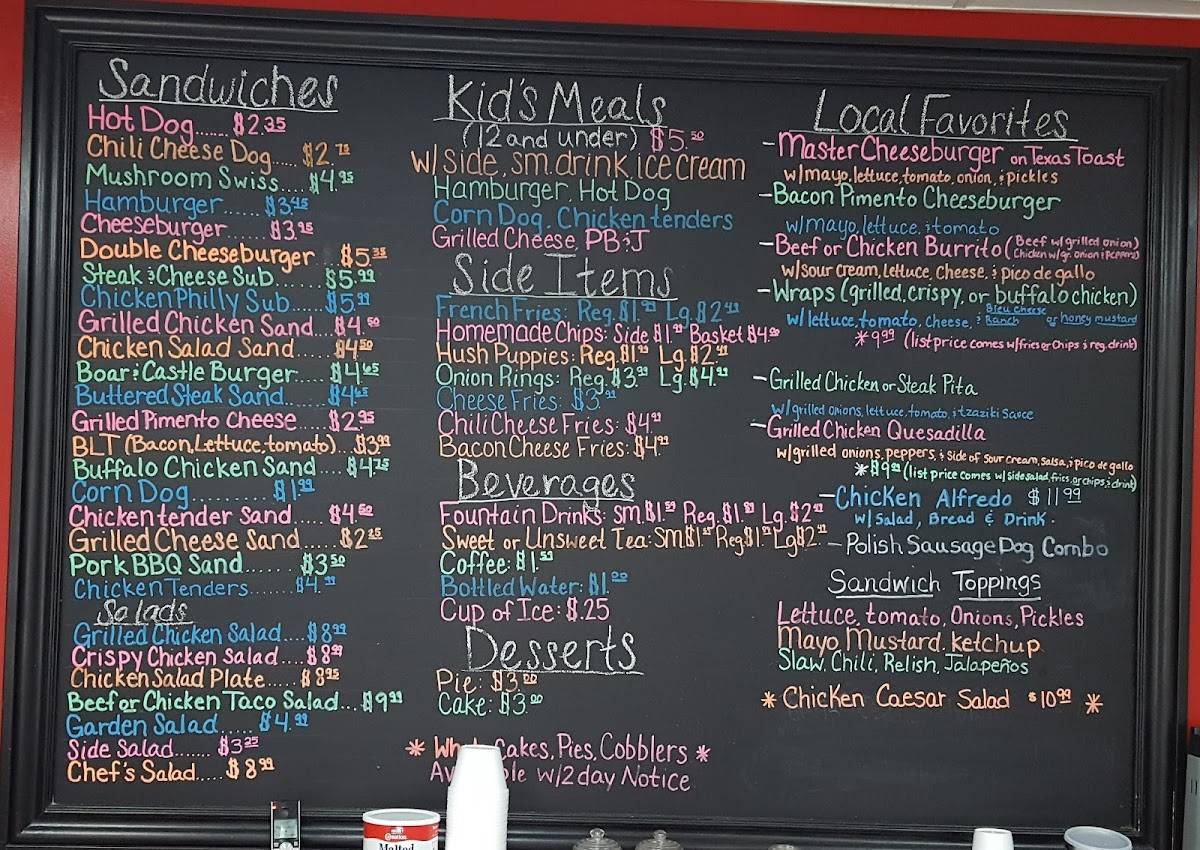 Sandwiches
Hot Dog....... $2.35
Chili Cheese Dog.... $2.75
Mushroom Swiss.... $4.95
Hamburger...... $3.45
Cheeseburger...... $3.95
Double Cheeseburger .. $5.35
Steak & Cheese Sub..... $5.99
Chicken Philly Sub.... $5.99
Grilled Chicken Sand.... $4.50
Chicken Salad Sand.... $4.50
Boar & Castle Burger.... $4.65
Buttered Steak Sand.... $4.65
Grilled Pimento Cheese ... $2.95
BLT (Bacon, Lettuce, tomato)... $3.99
Buffalo Chicken Sand.... $4.75
Corn Dog.......... $1.99
Chicken tender Sand.... $4.50
Grilled Cheese Sand.... $2.25
Pork BBQ Sand....... $3.50
Chicken Tenders ....... $4.99
Salads
Grilled Chicken Salad.... $8.99
Crispy Chicken Salad.... $8.99
Chicken Salad Plate.... $8.95
Beef or Chicken Taco Salad... $9.99
Garden Salad.... $4.99
Side Salad....... $3.25
Chef's Salad..... $8.99
Kid's Meals
(12 and under) $5.50
w/ side, sm. drink, ice cream
Hamburger, Hot Dog
Corn Dog, Chicken tenders
Grilled Cheese, PB&J
Side Items
French Fries: Reg. $1.99 Lg. $2.49
Homemade Chips: Side $1.99 Basket $4.99
Hush Puppies: Reg. $1.99 Lg. $2.99
Onion Rings: Reg. $3.99 Lg. $4.99
Cheese Fries: $3.99
Chili Cheese Fries: $4.99
Bacon Cheese Fries: $4.99
Beverages
Fountain Drinks: Sm. $1.59 Reg. $1.89 Lg. $2.49
Sweet or Unsweet Tea: Sm. Reg. Lg.
Coffee: $1.59
Bottled Water: $1.00
Cup of Ice: $.25
Desserts
Pie: $3.00
Cake: $3.00
* Cakes, Pies, Cobblers *
w/ 2 day Notice
Local Favorites
- Master Cheeseburger on Texas Toast
w/ mayo, lettuce, tomato, onion, & pickles
- Bacon Pimento Cheeseburger
w/ mayo, lettuce, & tomato
- Beef or Chicken Burrito (Beef w/ grilled onion)
Chicken w/ gr. onion & peppers)
w/ sour cream, lettuce, cheese, & pico de gallo
- Wraps (grilled, crispy, or buffalo chicken)
w/ lettuce, tomato, cheese, & Bleu cheese
Ranch or honey mustard
* 9.99 (list price comes w/ fries or chips & reg. drink)
- Grilled Chicken or Steak Pita
w/ grilled onions, lettuce, tomato, & tzaziki Sauce
- Grilled Chicken Quesadilla
w/ grilled onions, peppers, & side of sour cream, salsa, & pico de gallo
* $9.99 (list price comes w/ side salad, fries, or chips, & drink)
- Chicken Alfredo $11.99
w/ Salad, Bread & Drink.
- Polish Sausage Dog Combo
Sandwich Toppings
Lettuce, tomato, Onions, Pickles
Mayo, Mustard, ketchup
Slaw, Chili, Relish, Jalapeños
* Chicken Caesar Salad $10.99 *
Carnation
Malted